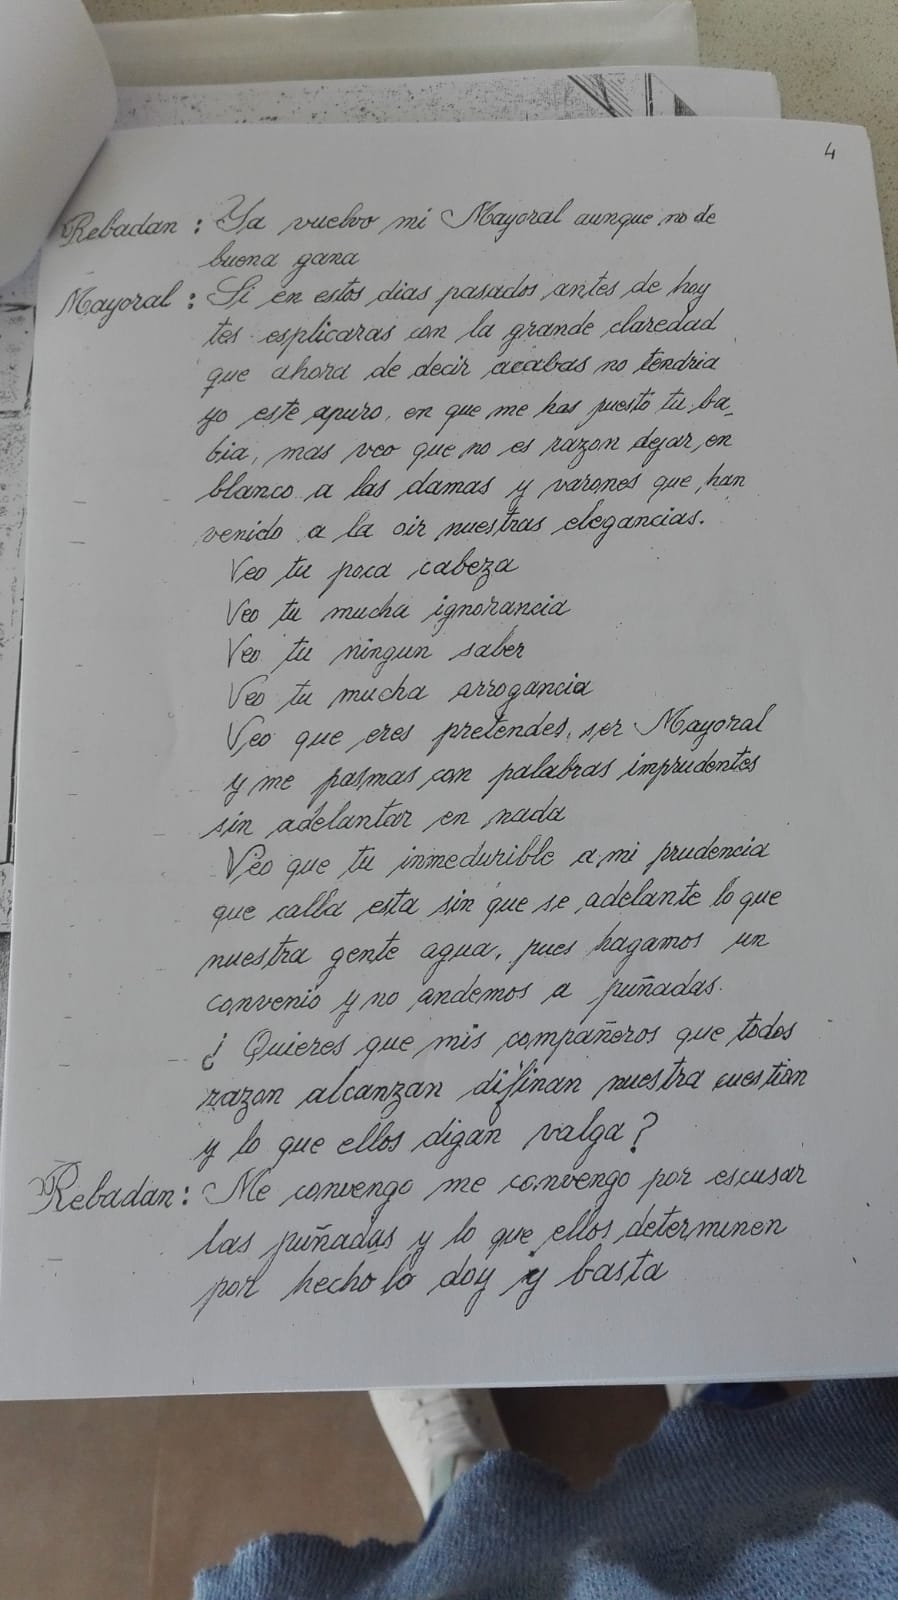 4
Rebadan: Ya vuelvo mi Mayoral aunque no de
buena gana
Mayoral: Si en estos dias pasados, antes de hoy
tes esplicaras con la grande claredad
que ahora de decir acabas no tendria
yo este apuro, en que me has puesto tu ba_
bia, mas veo que no es razon dejar, en
blanco a las damas y varones que, han
venido a la oir nuestras elegancias.
Veo tu poca cabeza
Veo tu mucha ignorancia
Veo tu ningun saber
Veo tu mucha arrogancia
Veo que eres pretendes, ser Mayoral
y me pasmas con palabras imprudentes
sin adelantar en nada
Veo que tu inmedurible a mi prudencia
que calla esta sin que se adelante lo que
nuestra gente agua, pues hagamos un
convenio y no andemos a puñadas.
¿Quieres que mis compañeros que todos
razon alcanzan difinan nuestra cuestion
y lo que ellos digan valga?
Rebadan: Me convengo me convengo por escusar
las puñadas y lo que ellos determinen
por hecho lo doy y basta